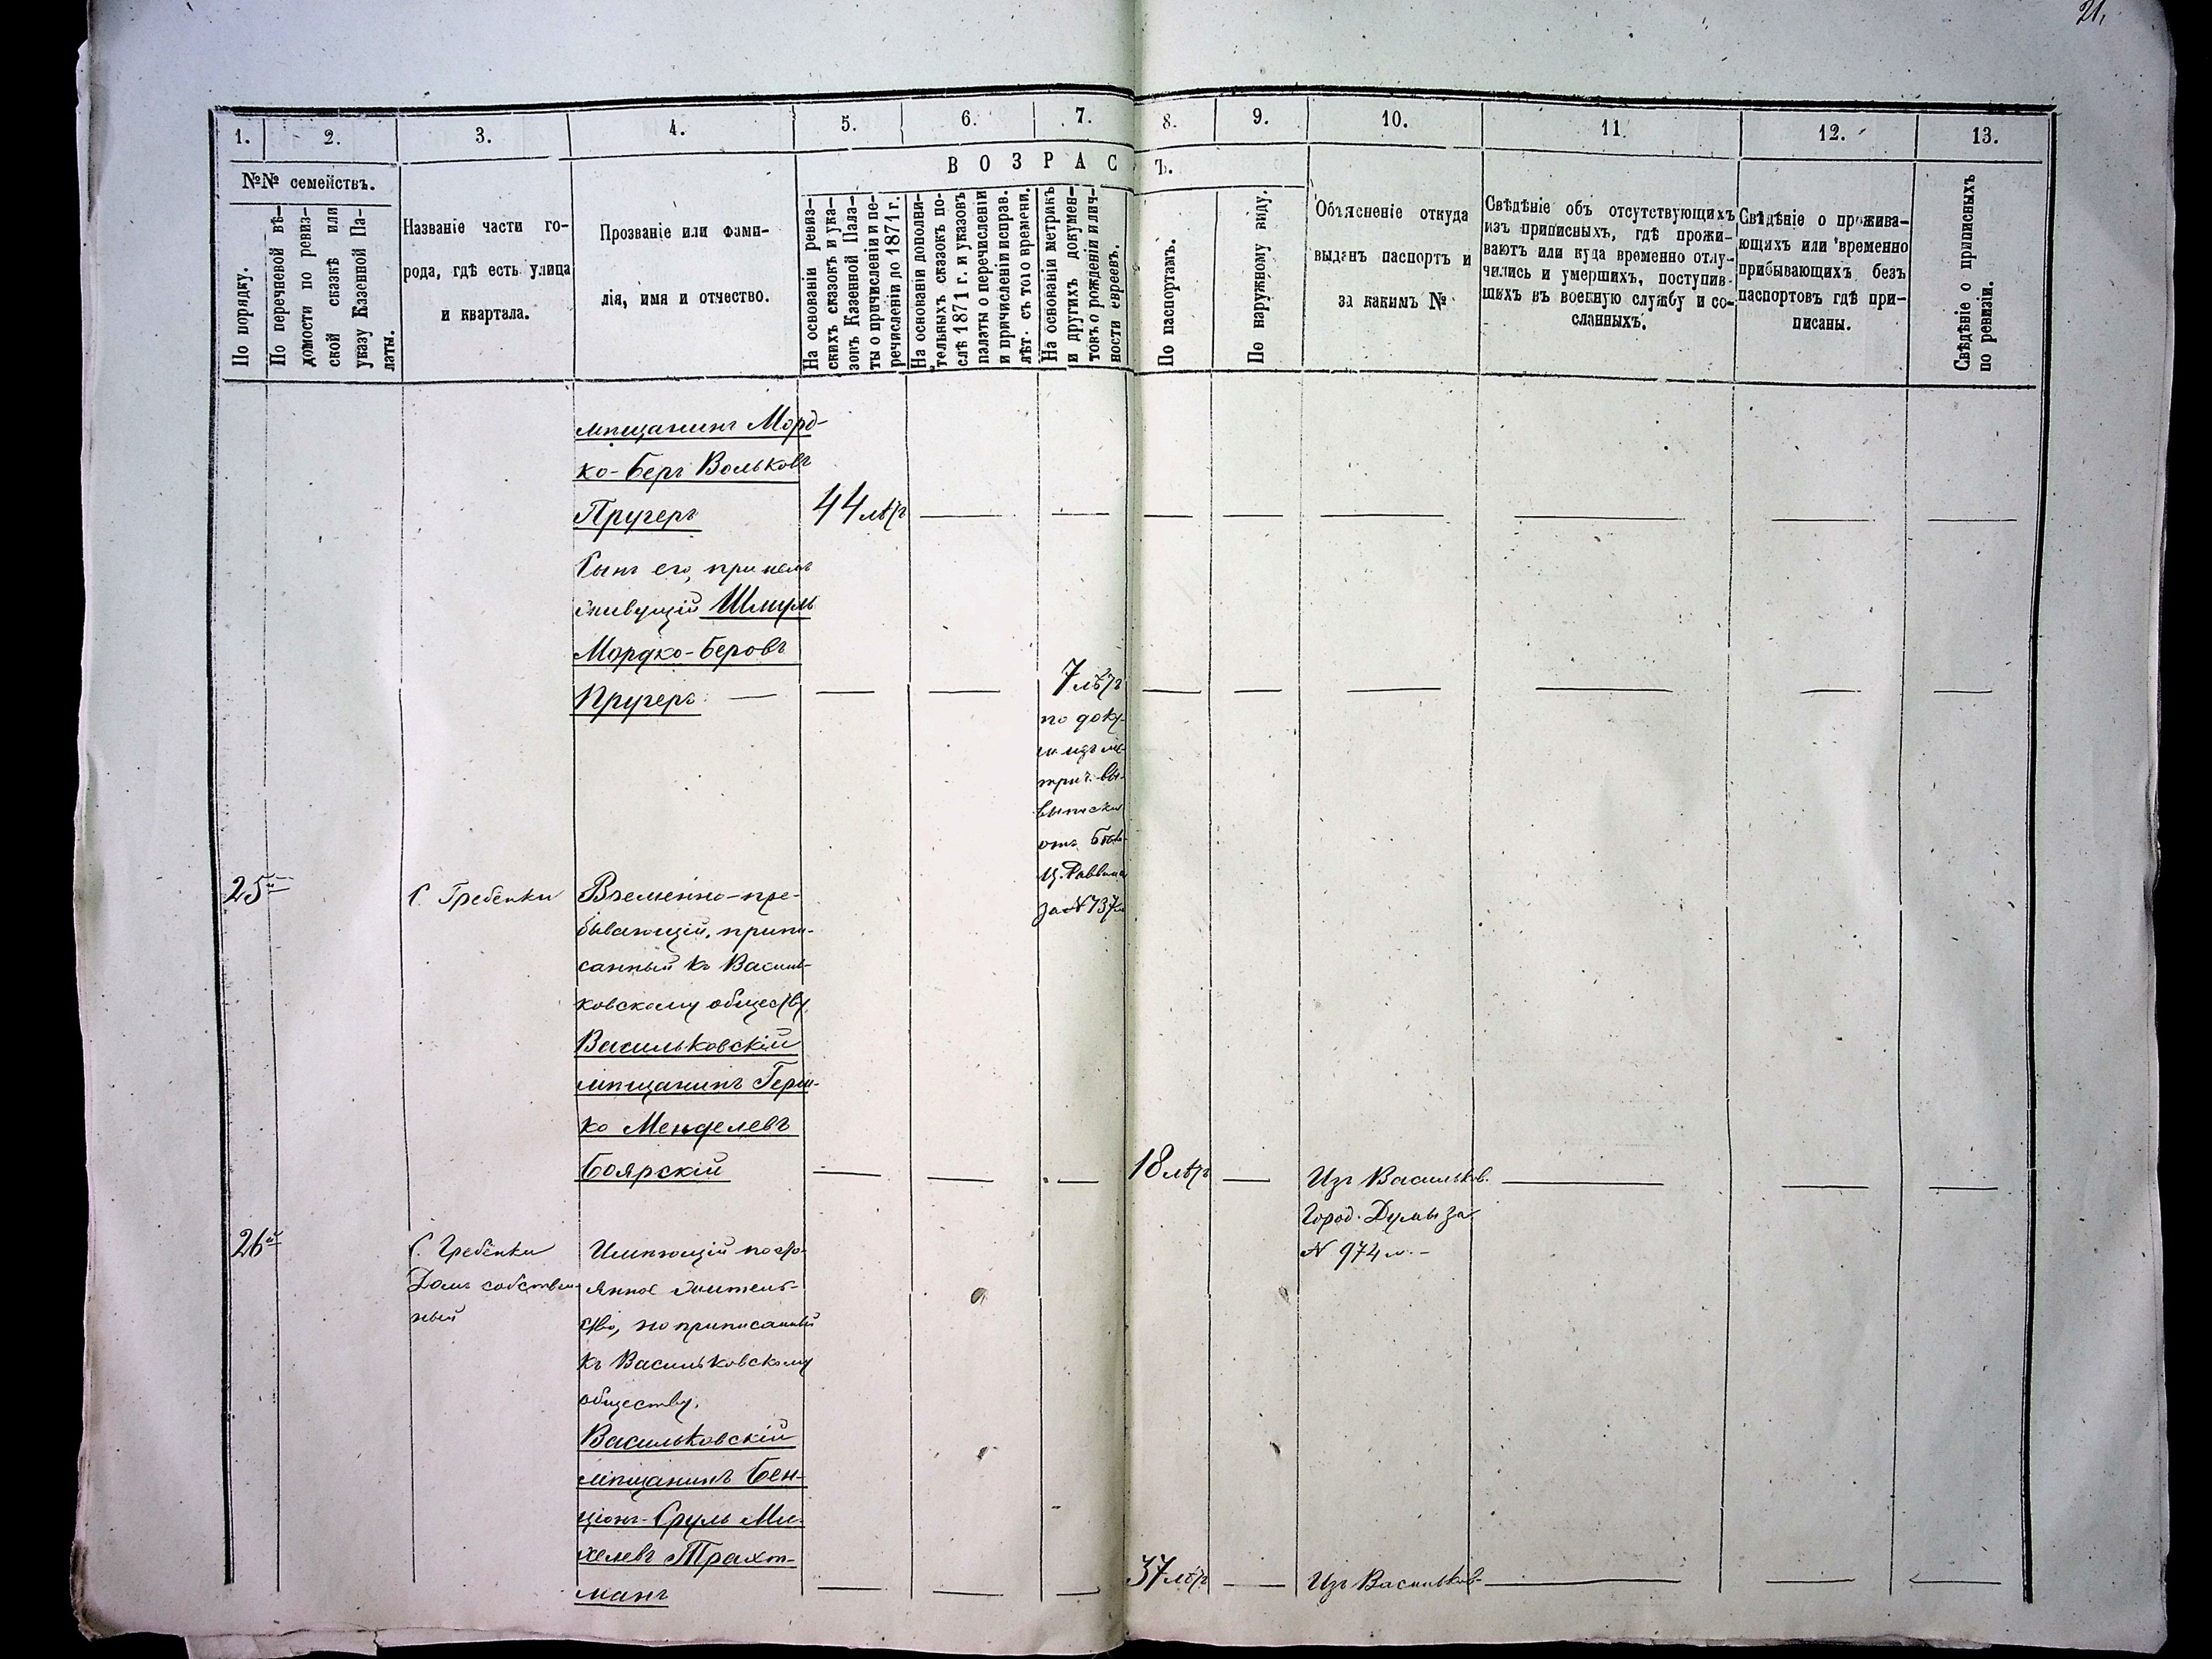 21,
1. 2. 3. 4. 5. 6. 7. 8. 9. 10. 11. 12. 13.
№№ семействъ.
По порядку.
По перечневой вѣ-
домости по ревиз-
ской сказкѣ или
указу Казенной Па-
латы.
Названіе части го-
рода, гдѣ есть улица
и квартала.
Прозваніе или фами-
лія, имя и отчество.
ВОЗРАС Ъ.
На основаніи ревиз-
скихъ сказокъ и ука-
зовъ Казенной Пала-
ты о причисленіи и пе-
речисленіи до 1871 г.
На основаніи дополни-
тельныхъ сказокъ по-
слѣ 1871 г. и указовъ
палаты о перечисленіи
и причисленіи исправ.
лѣт. съ того времени.
На основаніи метрикъ
и другихъ докумен-
товъ о рожденіи и лич-
ности евреевъ.
По паспортамъ.
По наружному виду.
Объясненіе откуда
выданъ паспортъ и
за какимъ №
Свѣдѣніе объ отсутствующихъ
изъ приписныхъ, гдѣ прожи-
ваютъ или куда временно отлу-
чились и умершихъ, поступив-
шихъ въ военную службу и со-
сланныхъ.
Свѣдѣніе о прожива-
ющихъ или временно
прибывающихъ безъ
паспортовъ гдѣ при-
писаны.
Свѣдѣніе о приписныхъ
по ревизіи.
мѣщанинъ Морд-
ко-Беръ Вольковъ
Пругеръ 44 лѣтъ — — — — — — — —
Сынъ его, при немъ
живущій Шмуль
Мордко-Беровъ
Пругеръ — — — 7 лѣтъ — — — — — —
по доку-
м. изъ ме-
трич. вы-
выписки
отъ Бѣло-
Ц. Раввина
за № 737
25й С. Гребенки Временно-пре-
бывающій, припи-
санный къ Василь-
ковскому обществу.
Васильковскій
мѣщанинъ Герш-
ко Менделевъ
Боярскій — — — 18 лѣтъ — Изъ Васильков. — — —
Город. Думы за
№ 974м. —
26й С. Гребёнки Имѣющій посто-
Домъ собствен- янное житель-
ный ство, но приписанный
къ Васильковскому
обществу.
Васильковскій
мѣщанинъ Бен-
ціонъ-Сруль Ми-
хелевъ Трахт-
манъ — — — 37 лѣтъ — Изъ Васильков- — — —